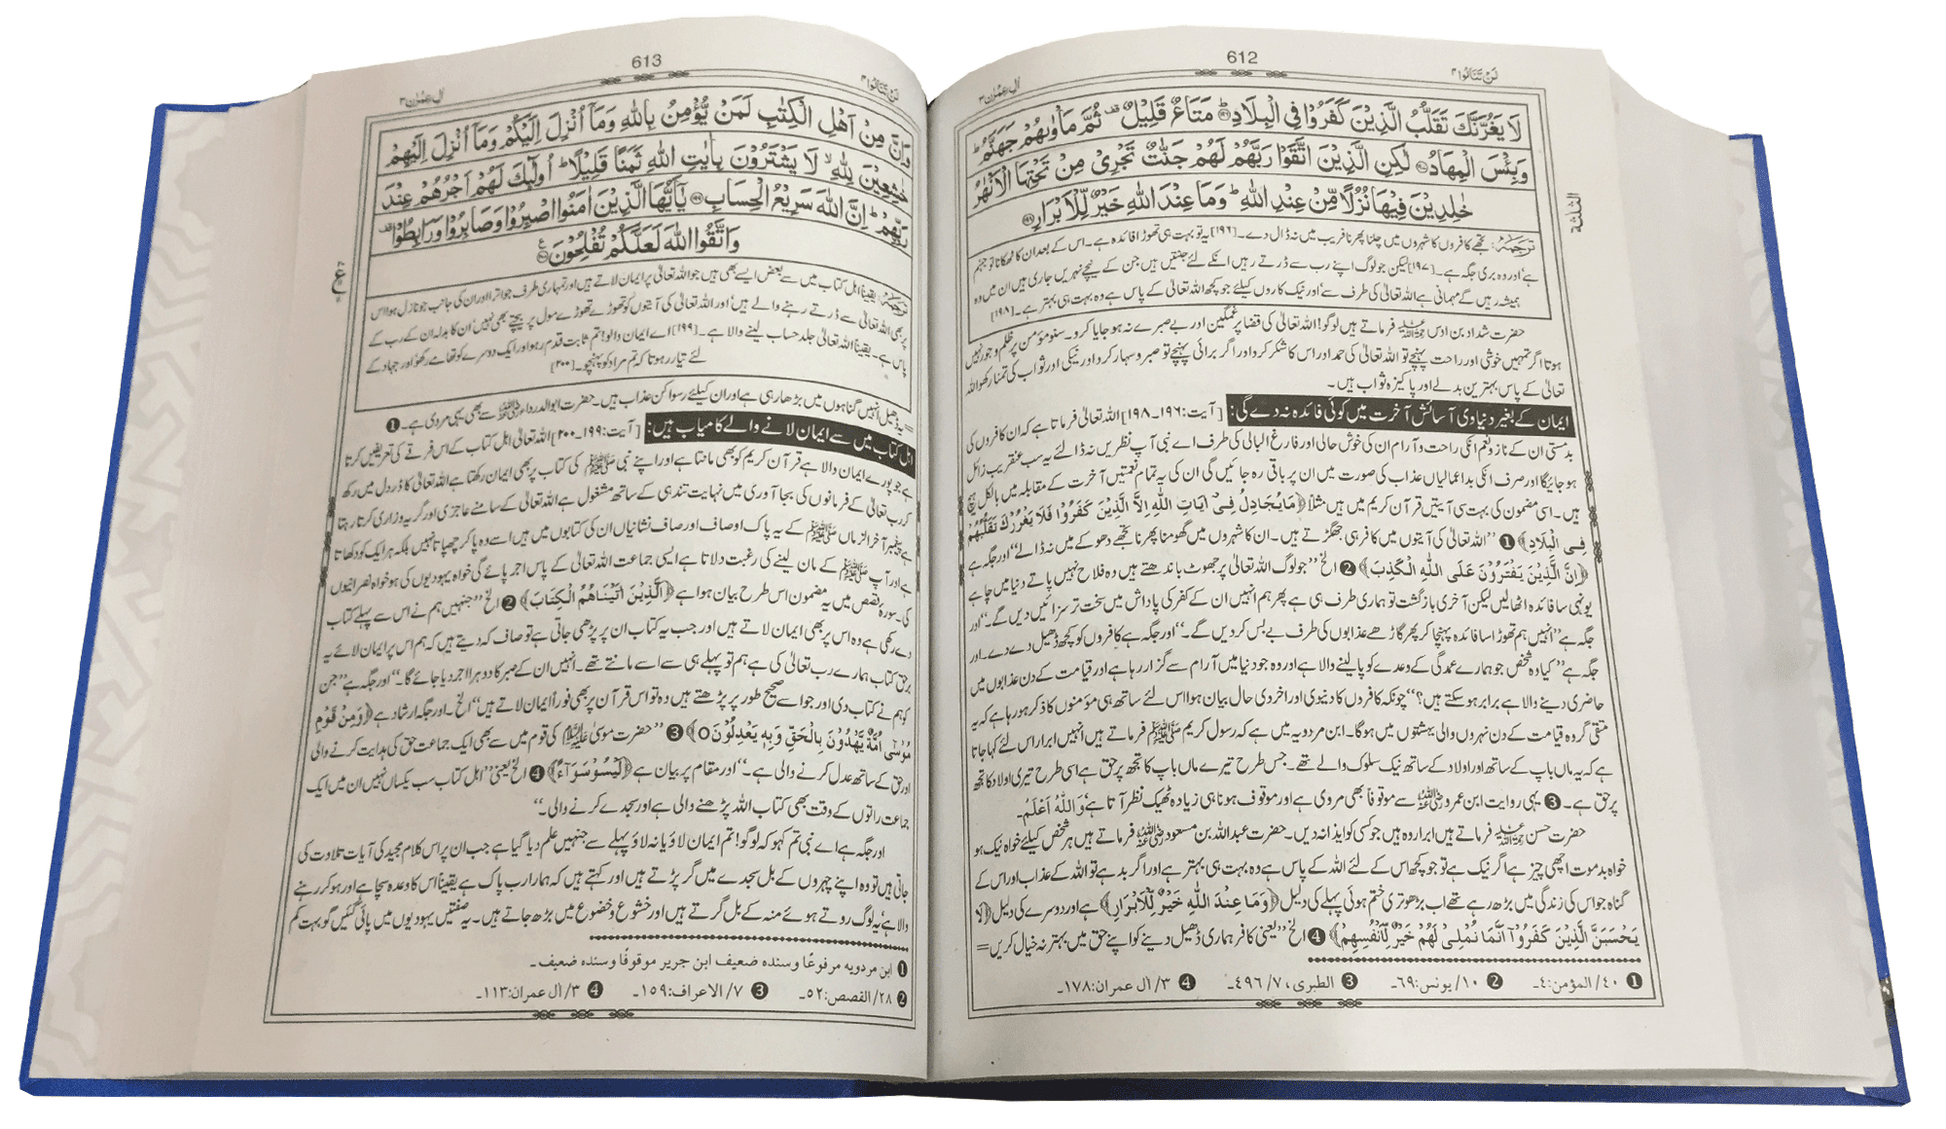 612
لَنْ تَنَالُوا ۴
اٰلِ عِمْرٰن ۳
لَا يَغُرَّنَّكَ تَقَلُّبُ الَّذِيْنَ كَفَرُوْا فِي الْبِلَادِ ؕ مَتَاعٌ قَلِيْلٌ ۫ ثُمَّ مَاْوٰىهُمْ جَهَنَّمُ ؕ
وَبِئْسَ الْمِهَادُ لٰكِنِ الَّذِيْنَ اتَّقَوْا رَبَّهُمْ لَهُمْ جَنّٰتٌ تَجْرِيْ مِنْ تَحْتِهَا الْاَنْهٰرُ
خٰلِدِيْنَ فِيْهَا نُزُلًا مِّنْ عِنْدِ اللّٰهِ ؕ وَمَا عِنْدَ اللّٰهِ خَيْرٌ لِّلْاَبْرَارِ
ترجمہ: تجھے کافروں کا شہروں میں چلنا پھرنا فریب میں نہ ڈال دے۔ [۱۹۶] یہ تو بہت ہی تھوڑا فائدہ ہے۔ اس کے بعد ان کا ٹھکانا تو جہنم
ہے اور وہ بری جگہ ہے۔ [۱۹۷] لیکن جو لوگ اپنے رب سے ڈرتے رہیں انکے لئے جنتیں ہیں جن کے نیچے نہریں جاری ہیں ان میں وہ
ہمیشہ رہیں گے مہمانی ہے اللہ تعالیٰ کی طرف سے اور نیک کاروں کیلئے جو کچھ اللہ تعالیٰ کے پاس ہے وہ بہت ہی بہتر ہے۔ [۱۹۸]
حضرت شداد بن اوس فرماتے ہیں لوگو! اللہ تعالیٰ کی قضا پر غمگین اور بے صبرے نہ ہو جایا کرو۔ سنو مؤمن پر ظلم و جور نہیں
ہوتا اگر تمہیں خوشی اور راحت پہنچے تو اللہ تعالیٰ کی حمد اور اس کا شکر کرو اور اگر برائی پہنچے تو صبر و سہار کرو اور نیکی اور ثواب کی تمنا رکھو اللہ
تعالیٰ کے پاس بہترین بدلے اور پاکیزہ ثواب ہیں۔
ایمان کے بغیر دنیاوی آسائش آخرت میں کوئی فائدہ نہ دے گی: [آیت: ۱۹۶۔۱۹۸] اللہ تعالیٰ فرماتا ہے کہ ان کافروں کی
بدمستی ان کے ناز و نعم انکی راحت و آرام ان کی خوش حالی اور فارغ البالی کی طرف اے نبی آپ نظریں نہ ڈالئے یہ سب عنقریب زائل
ہو جائیگا اور صرف انکی بداعمالیاں عذاب کی صورت میں ان پر باقی رہ جائیں گی ان کی یہ تمام نعمتیں آخرت کے مقابلہ میں بالکل ہیچ
ہیں۔ اسی مضمون کی بہت سی آیتیں قرآن کریم میں ہیں مثلاً ﴿مَا يُجَادِلُ فِيْ اٰيَاتِ اللّٰهِ اِلَّا الَّذِيْنَ كَفَرُوْا فَلَا يَغْرُرْكَ تَقَلُّبُهُمْ
فِي الْبِلَادِ﴾ ❶ "اللہ تعالیٰ کی آیتوں میں کافر ہی جھگڑتے ہیں۔ ان کا شہروں میں گھومنا پھرنا تجھے دھوکے میں نہ ڈالے" اور جگہ ہے
﴿اِنَّ الَّذِيْنَ يَفْتَرُوْنَ عَلَى اللّٰهِ الْكَذِبَ﴾ ❷ الخ "جو لوگ اللہ تعالیٰ پر جھوٹ باندھتے ہیں وہ فلاح نہیں پاتے دنیا میں چاہے
یونہی سا فائدہ اٹھالیں لیکن آخری بازگشت تو ہماری طرف ہی ہے پھر ہم انہیں ان کے کفر کی پاداش میں سخت تر سزائیں دیں گے۔" اور
جگہ ہے "انہیں ہم تھوڑا سا فائدہ پہنچا کر پھر گاڑھے عذابوں کی طرف بے بس کر دیں گے۔" اور جگہ ہے کافروں کو کچھ ڈھیل دے دے۔ اور
جگہ ہے "کیا وہ شخص جو ہمارے عمدگی کے وعدے کو پالینے والا ہے اور وہ جو دنیا میں آرام سے گزار رہا ہے اور قیامت کے دن عذابوں میں
حاضری دینے والا ہے برابر ہو سکتے ہیں؟" چونکہ کافروں کا دنیوی اور اخروی حال بیان ہوا اس لئے ساتھ ہی مؤمنوں کا ذکر ہو رہا ہے کہ یہ
متقی گروہ قیامت کے دن نہروں والی بہشتوں میں ہوگا۔ ابن مردویہ میں ہے کہ رسول کریم ﷺ فرماتے ہیں انہیں ابرار اس لئے کہا جاتا
ہے کہ یہ ماں باپ کے ساتھ اور اولاد کے ساتھ نیک سلوک والے تھے۔ جس طرح تیرے ماں باپ کا تجھ پر حق ہے اسی طرح تیری اولاد کا تجھ
پر حق ہے۔ ❸ یہی روایت ابن عمرو سے موقوفاً بھی مروی ہے اور موقوف ہونا ہی زیادہ ٹھیک نظر آتا ہے وَاللّٰهُ اَعْلَمُ۔
حضرت حسن فرماتے ہیں ابرار وہ ہیں جو کسی کو ایذا نہ دیں۔ حضرت عبداللہ بن مسعود فرماتے ہیں ہر شخص کیلئے خواہ نیک ہو
خواہ بد موت اچھی چیز ہے اگر نیک ہے تو جو کچھ اس کے لئے اللہ کے پاس ہے وہ بہت ہی بہتر ہے اور اگر بد ہے تو اللہ کے عذاب اور اس کے
گناہ جو اس کی زندگی میں بڑھ رہے تھے اب بڑھوتری ختم ہوئی پہلے کی دلیل ﴿وَمَا عِنْدَ اللّٰهِ خَيْرٌ لِّلْاَبْرَارِ﴾ ہے اور دوسرے کی دلیل ﴿لَا
يَحْسَبَنَّ الَّذِيْنَ كَفَرُوْا اَنَّمَا نُمْلِيْ لَهُمْ خَيْرٌ لِّاَنْفُسِهِمْ﴾ ❹ الخ "یعنی کافر ہماری ڈھیل دینے کو اپنے حق میں بہتر نہ خیال کریں =
❶ ۴۰/ المؤمن: ۴۔ ❷ ۱۰/ یونس: ۶۹۔ ❸ الطبری، ۷/ ۴۹۶۔ ❹ ۳/ اٰل عمران: ۱۷۸۔
613
لَنْ تَنَالُوا ۴
اٰلِ عِمْرٰن ۳
وَاِنَّ مِنْ اَهْلِ الْكِتٰبِ لَمَنْ يُّؤْمِنُ بِاللّٰهِ وَمَآ اُنْزِلَ اِلَيْكُمْ وَمَآ اُنْزِلَ اِلَيْهِمْ
خٰشِعِيْنَ لِلّٰهِ ۙ لَا يَشْتَرُوْنَ بِاٰيٰتِ اللّٰهِ ثَمَنًا قَلِيْلًا ؕ اُولٰٓئِكَ لَهُمْ اَجْرُهُمْ عِنْدَ
رَبِّهِمْ ؕ اِنَّ اللّٰهَ سَرِيْعُ الْحِسَابِ يٰٓاَيُّهَا الَّذِيْنَ اٰمَنُوا اصْبِرُوْا وَصَابِرُوْا وَرَابِطُوْا ۫
وَاتَّقُوا اللّٰهَ لَعَلَّكُمْ تُفْلِحُوْنَ
ترجمہ: یقیناً اہل کتاب میں سے بعض ایسے بھی ہیں جو اللہ تعالیٰ پر ایمان لاتے ہیں اور تمہاری طرف جو اترا اور ان کی جانب جو نازل ہوا اس
پر بھی اللہ تعالیٰ سے ڈرتے رہنے والے ہیں اور اللہ تعالیٰ کی آیتوں کو تھوڑے تھوڑے مول پر بیچتے بھی نہیں ان کا بدلہ ان کے رب کے
پاس ہے۔ یقیناً اللہ تعالیٰ جلد حساب لینے والا ہے۔ [۱۹۹] اے ایمان والو! تم ثابت قدم رہو اور ایک دوسرے کو تھامے رکھو اور جہاد کے
لئے تیار رہو تا کہ تم مراد کو پہنچو۔ [۲۰۰]
= یہ ڈھیل انہیں گناہوں میں بڑھا رہی ہے اور ان کیلئے رسوا کن عذاب ہیں۔ حضرت ابو الدرداء سے بھی یہی مروی ہے۔ ❶
اہل کتاب میں سے ایمان لانے والے کامیاب ہیں: [آیت: ۱۹۹۔۲۰۰] اللہ تعالیٰ اہل کتاب کے اس فرقے کی تعریفیں کرتا
ہے جو پورے ایمان والا ہے قرآن کریم کو بھی مانتا ہے اور اپنے نبی کی کتاب پر بھی ایمان رکھتا ہے اللہ تعالیٰ کا ڈر دل میں رکھ
کر رب تعالیٰ کے فرمانوں کی بجا آوری میں نہایت تندہی کے ساتھ مشغول ہے اللہ تعالیٰ کے سامنے عاجزی اور گریہ وزاری کرتا رہتا
ہے پیغمبر آخر الزماں ﷺ کے یہ پاک اوصاف اور صاف نشانیاں ان کی کتابوں میں ہیں اسے وہ پا کر چھپاتا نہیں بلکہ ہر ایک کو دکھاتا
ہے اور آپ ﷺ کے مان لینے کی رغبت دلاتا ہے ایسی جماعت اللہ تعالیٰ کے پاس اجر پائے گی خواہ یہودیوں کی ہو خواہ نصرانیوں
کی۔ سورۂ قصص میں یہ مضمون اس طرح بیان ہوا ہے ﴿اَلَّذِيْنَ اٰتَيْنَاهُمُ الْكِتَابَ﴾ ❷ الخ "جنہیں ہم نے اس سے پہلے کتاب
دے رکھی ہے وہ اس پر بھی ایمان لاتے ہیں اور جب یہ کتاب ان پر پڑھی جاتی ہے تو صاف کہہ دیتے ہیں کہ ہم اس پر ایمان لائے یہ
برحق کتاب ہمارے رب تعالیٰ کی ہے ہم تو پہلے ہی سے اسے مانتے تھے۔ انہیں ان کے صبر کا دوہرا اجر دیا جائے گا۔" اور جگہ ہے "جن
کو ہم نے کتاب دی اور جو اسے صحیح طور پر پڑھتے ہیں وہ تو اس قرآن پر بھی فوراً ایمان لاتے ہیں" الخ۔ اور جگہ ارشاد ہے ﴿وَمِنْ قَوْمِ
مُوْسٰٓى اُمَّةٌ يَّهْدُوْنَ بِالْحَقِّ وَبِهٖ يَعْدِلُوْنَ﴾ ❸ "حضرت موسیٰ کی قوم میں سے بھی ایک جماعت حق کی ہدایت کرنے والی
اور حق کے ساتھ عدل کرنے والی ہے۔" اور مقام پر بیان ہے ﴿لَيْسُوْا سَوَآءً﴾ ❹ الخ یعنی "اہل کتاب سب یکساں نہیں ان میں ایک
جماعت راتوں کے وقت بھی کتاب اللہ پڑھنے والی ہے اور سجدے کرنے والی۔"
اور جگہ ہے اے نبی تم کہو کہ لوگو! تم ایمان لاؤ یا نہ لاؤ پہلے سے جنہیں علم دیا گیا ہے جب ان پر اس کلام مجید کی آیات تلاوت کی
جاتی ہیں تو وہ اپنے چہروں کے بل سجدے میں گر پڑتے ہیں اور کہتے ہیں کہ ہمارا رب پاک ہے یقیناً اس کا وعدہ سچا ہے اور ہو کر رہنے
والا ہے یہ لوگ روتے ہوئے منہ کے بل گرتے ہیں اور خشوع و خضوع میں بڑھ جاتے ہیں۔ یہ صفتیں یہودیوں میں پائی گئیں گو بہت کم
❶ ابن مردویہ مرفوعًا وسندہ ضعیف ابن جریر موقوفًا وسندہ ضعیف۔
❷ ۲۸/ القصص: ۵۲۔ ❸ ۷/ الاعراف: ۱۵۹۔ ❹ ۳/ اٰل عمران: ۱۱۳۔